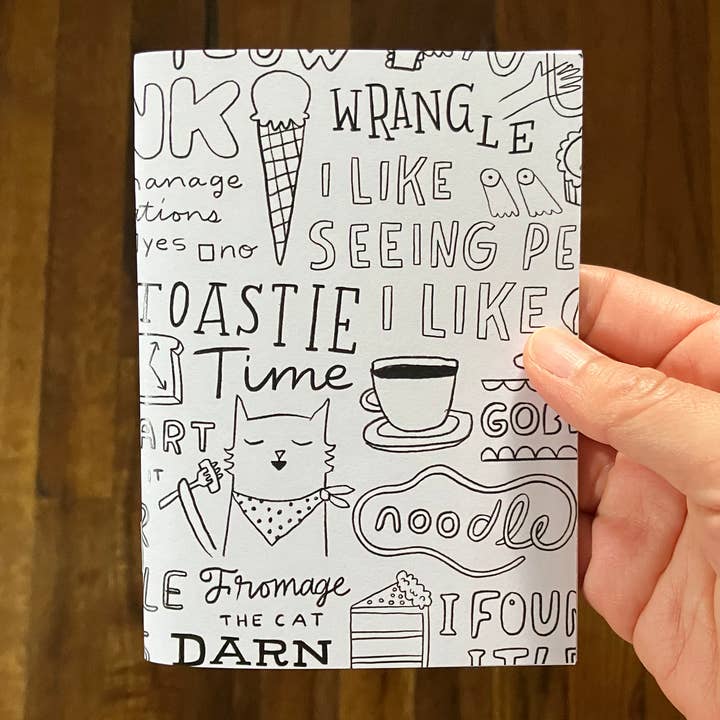 NK
WRANGLE
manage
ations
yes no
I LIKE
SEEING PE
TOASTIE
Time
I LIKE
ART
GOB
noodle
LE
Fromage
THE CAT
DARN
I FOUN